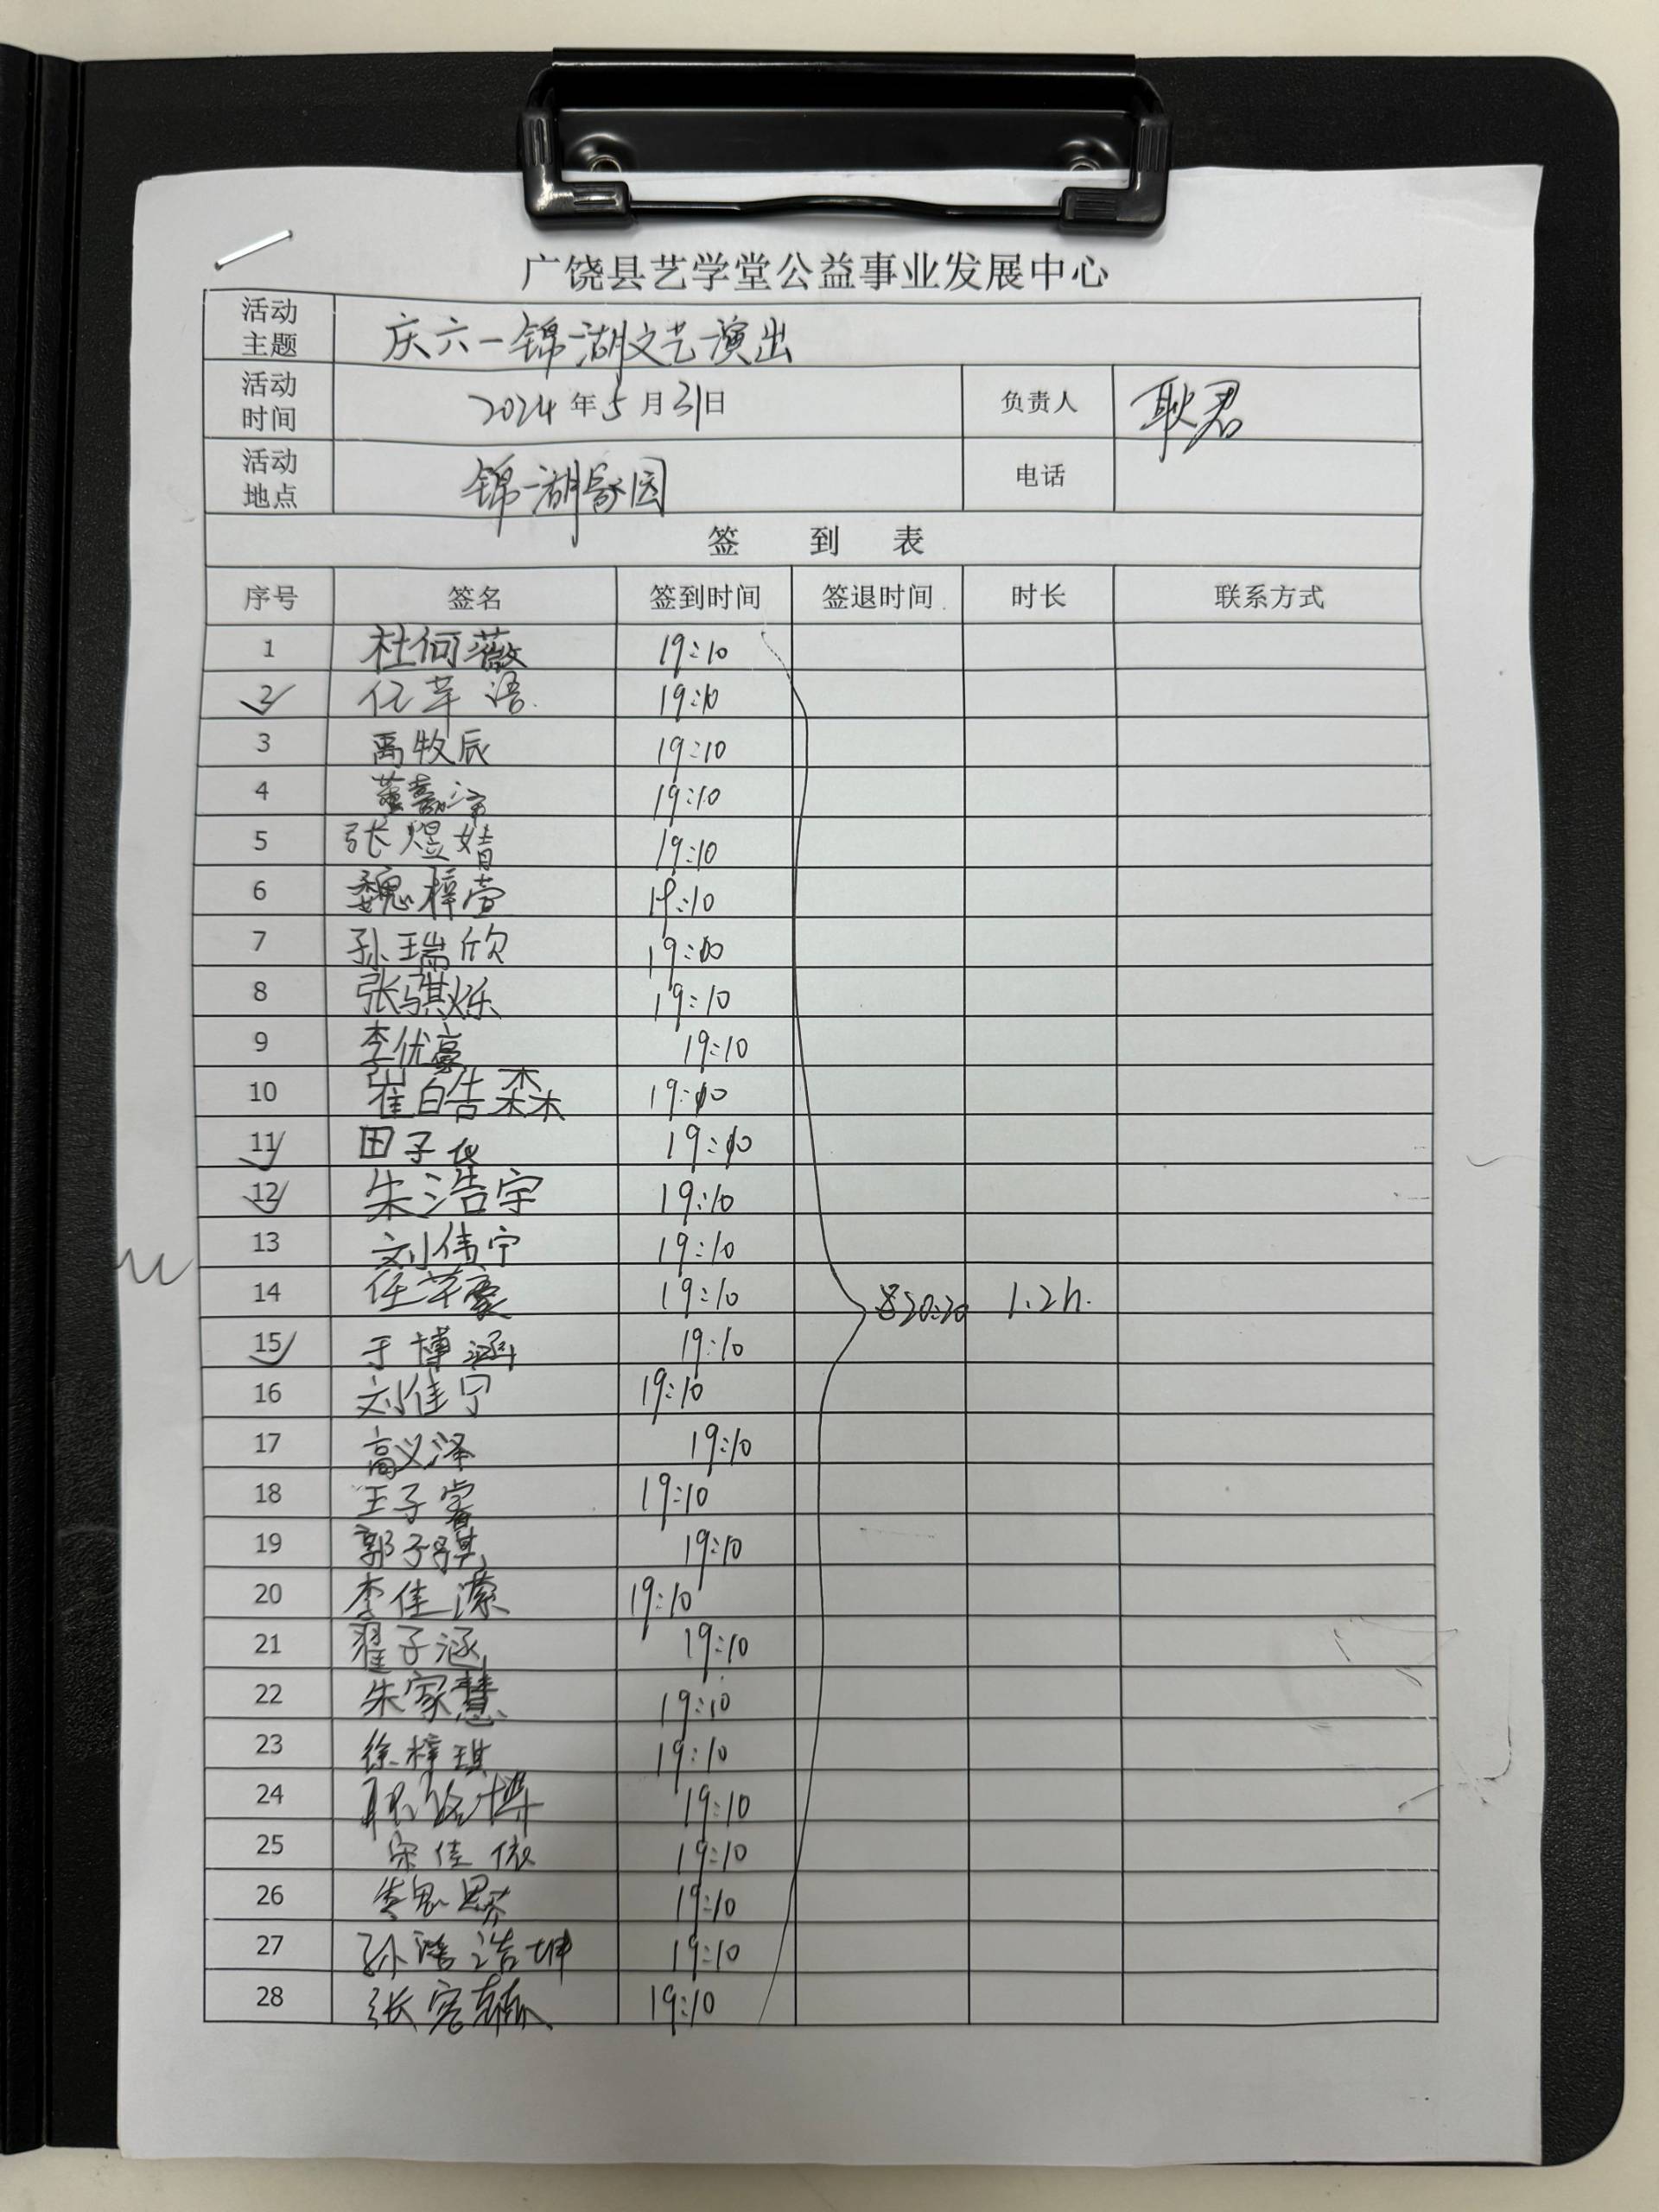 广饶县艺学堂公益事业发展中心
活动主题 庆六一锦湖文艺演出
活动时间 2024年5月31日 负责人 耿君
活动地点 锦湖家园 电话
签到表
序号 签名 签到时间 签退时间 时长 联系方式
1 杜何薇 19:10
2 任芊语 19:10
3 禹牧辰 19:10
4 19:10
5 张煜婧 19:10
6 魏梓萱 19:10
7 孙瑞欣 19:10
8 张骐烁 19:10
9 李优豪 19:10
10 崔皓森 19:10
11 田子 19:10
12 朱浩宇 19:10
13 刘伟宁 19:10
14 任芊豪 19:10 20:20 1.2h.
15 于博涵 19:10
16 刘佳宁 19:10
17 高义泽 19:10
18 王子睿 19:10
19 郭子骐 19:10
20 李佳潆 19:10
21 翟子涵 19:10
22 朱家慧 19:10
23 徐梓琪 19:10
24 19:10
25 宋佳依 19:10
26 19:10
27 孙浩坤 19:10
28 张宸赫 19:10